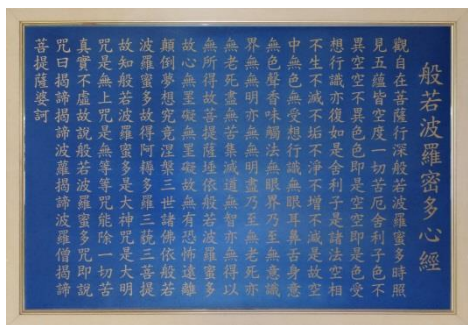 般若波羅密多心經
觀自在菩薩行深般若波羅蜜多時照
見五蘊皆空度一切苦厄舍利子色不
異空空不異色色即是空空即是色受
想行識亦復如是舍利子是諸法空相
不生不滅不垢不淨不增不減是故空
中無色無受想行識無眼耳鼻舌身意
無色聲香味觸法無眼界乃至無意識
界無無明亦無無明盡乃至無老死亦
無老死盡無苦集滅道無智亦無得以
無所得故菩提薩埵依般若波羅蜜多
故心無罣礙無罣礙故無有恐怖遠離
顛倒夢想究竟涅槃三世諸佛依般若
波羅蜜多故得阿耨多羅三藐三菩提
故知般若波羅蜜多是大神咒是大明
咒是無上咒是無等等咒能除一切苦
真實不虛故說般若波羅蜜多咒即說
咒曰揭諦揭諦波羅揭諦波羅僧揭諦
菩提薩婆訶